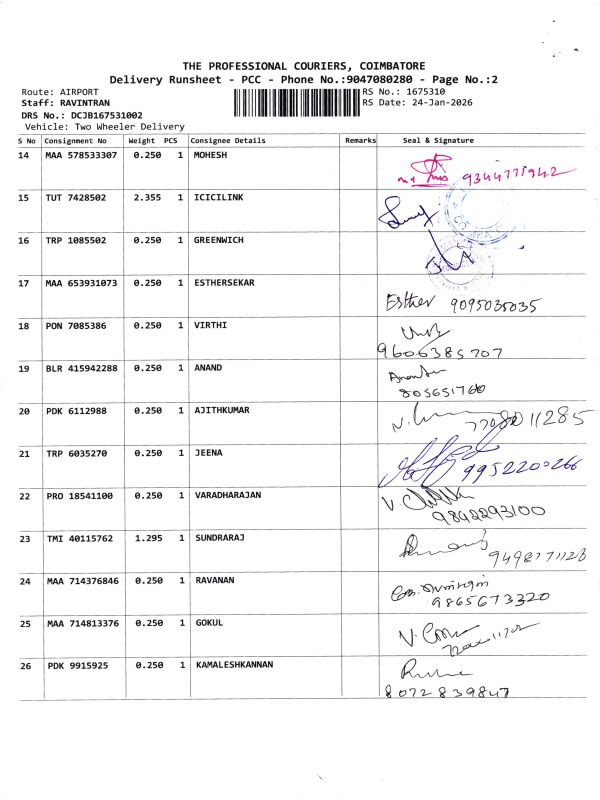 THE PROFESSIONAL COURIERS, COIMBATORE
Delivery Runsheet - PCC - Phone No.:9047080280 - Page No.:2
Route: AIRPORT RS No.: 1675310
Staff: RAVINTRAN RS Date: 24-Jan-2026
DRS No.: DCJB167531002
Vehicle: Two Wheeler Delivery
S No Consignment No Weight PCS Consignee Details Remarks Seal & Signature
14 MAA 578533307 0.250 1 MOHESH
9344771942
15 TUT 7428502 2.355 1 ICICILINK
16 TRP 1085502 0.250 1 GREENWICH
17 MAA 653931073 0.250 1 ESTHERSEKAR
Esther 9095035035
18 PON 7085386 0.250 1 VIRTHI
9606385707
19 BLR 415942288 0.250 1 ANAND
805651760
20 PDK 6112988 0.250 1 AJITHKUMAR
21 TRP 6035270 0.250 1 JEENA
9952200266
22 PRO 18541100 0.250 1 VARADHARAJAN
9842293100
23 TMI 40115762 1.295 1 SUNDRARAJ
24 MAA 714376846 0.250 1 RAVANAN
9865673320
25 MAA 714813376 0.250 1 GOKUL
26 PDK 9915925 0.250 1 KAMALESHKANNAN
8072839847